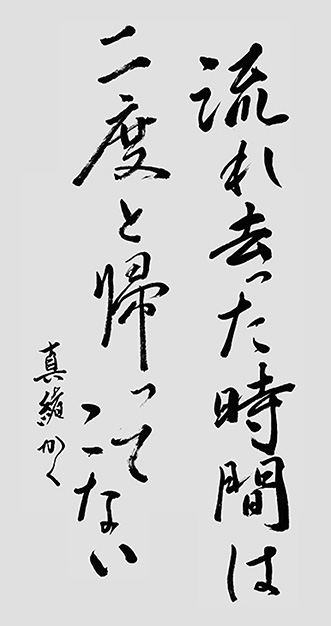 流れ去った時間は
二度と帰ってこない
真緒かく